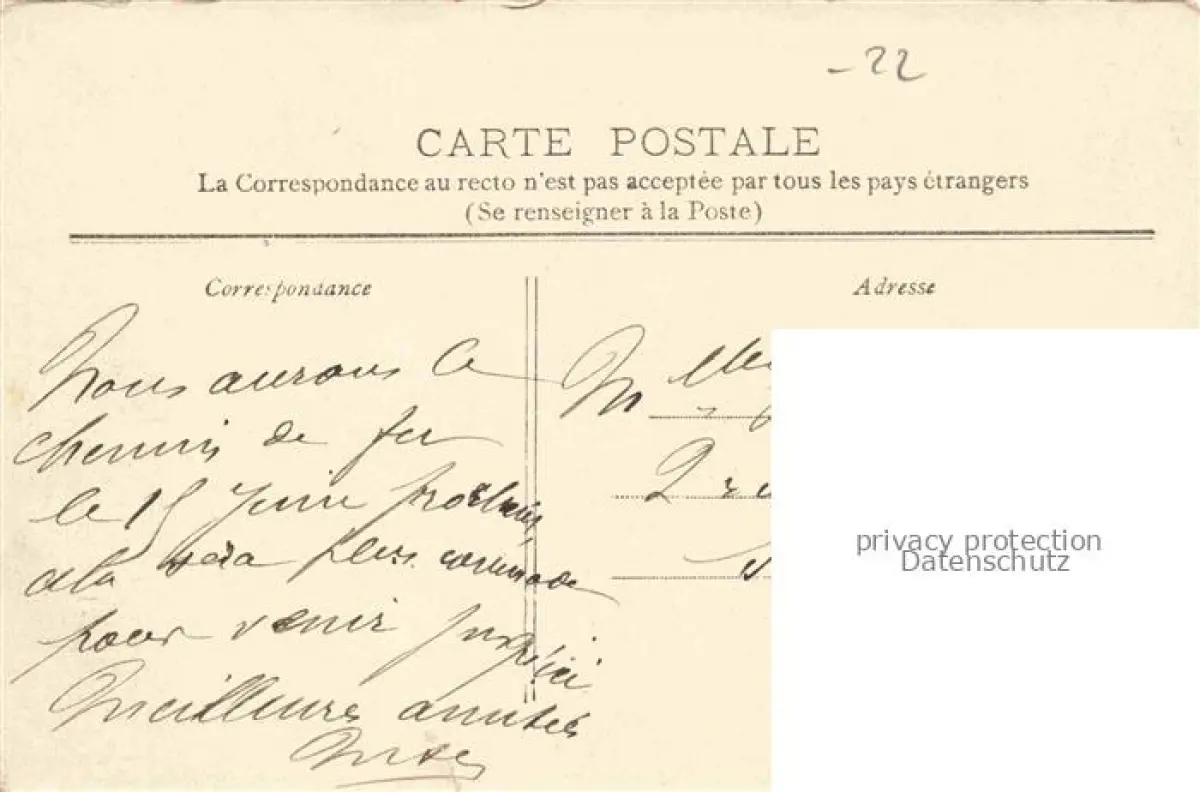 -22
CARTE POSTALE
La Correspondance au recto n'est pas acceptée par tous les pays étrangers
(Se renseigner à la Poste)
Correspondance
Adresse
Nous aurons le
chemin de fer
le 15 Juin prochain,
cela sera plus commode
pour venir jusqu'ici
Meilleures amitiés
Mlle
privacy protection
Datenschutz